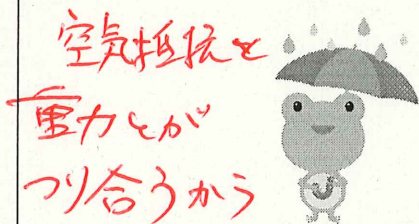 空気抵抗と
重力とが
つり合うから